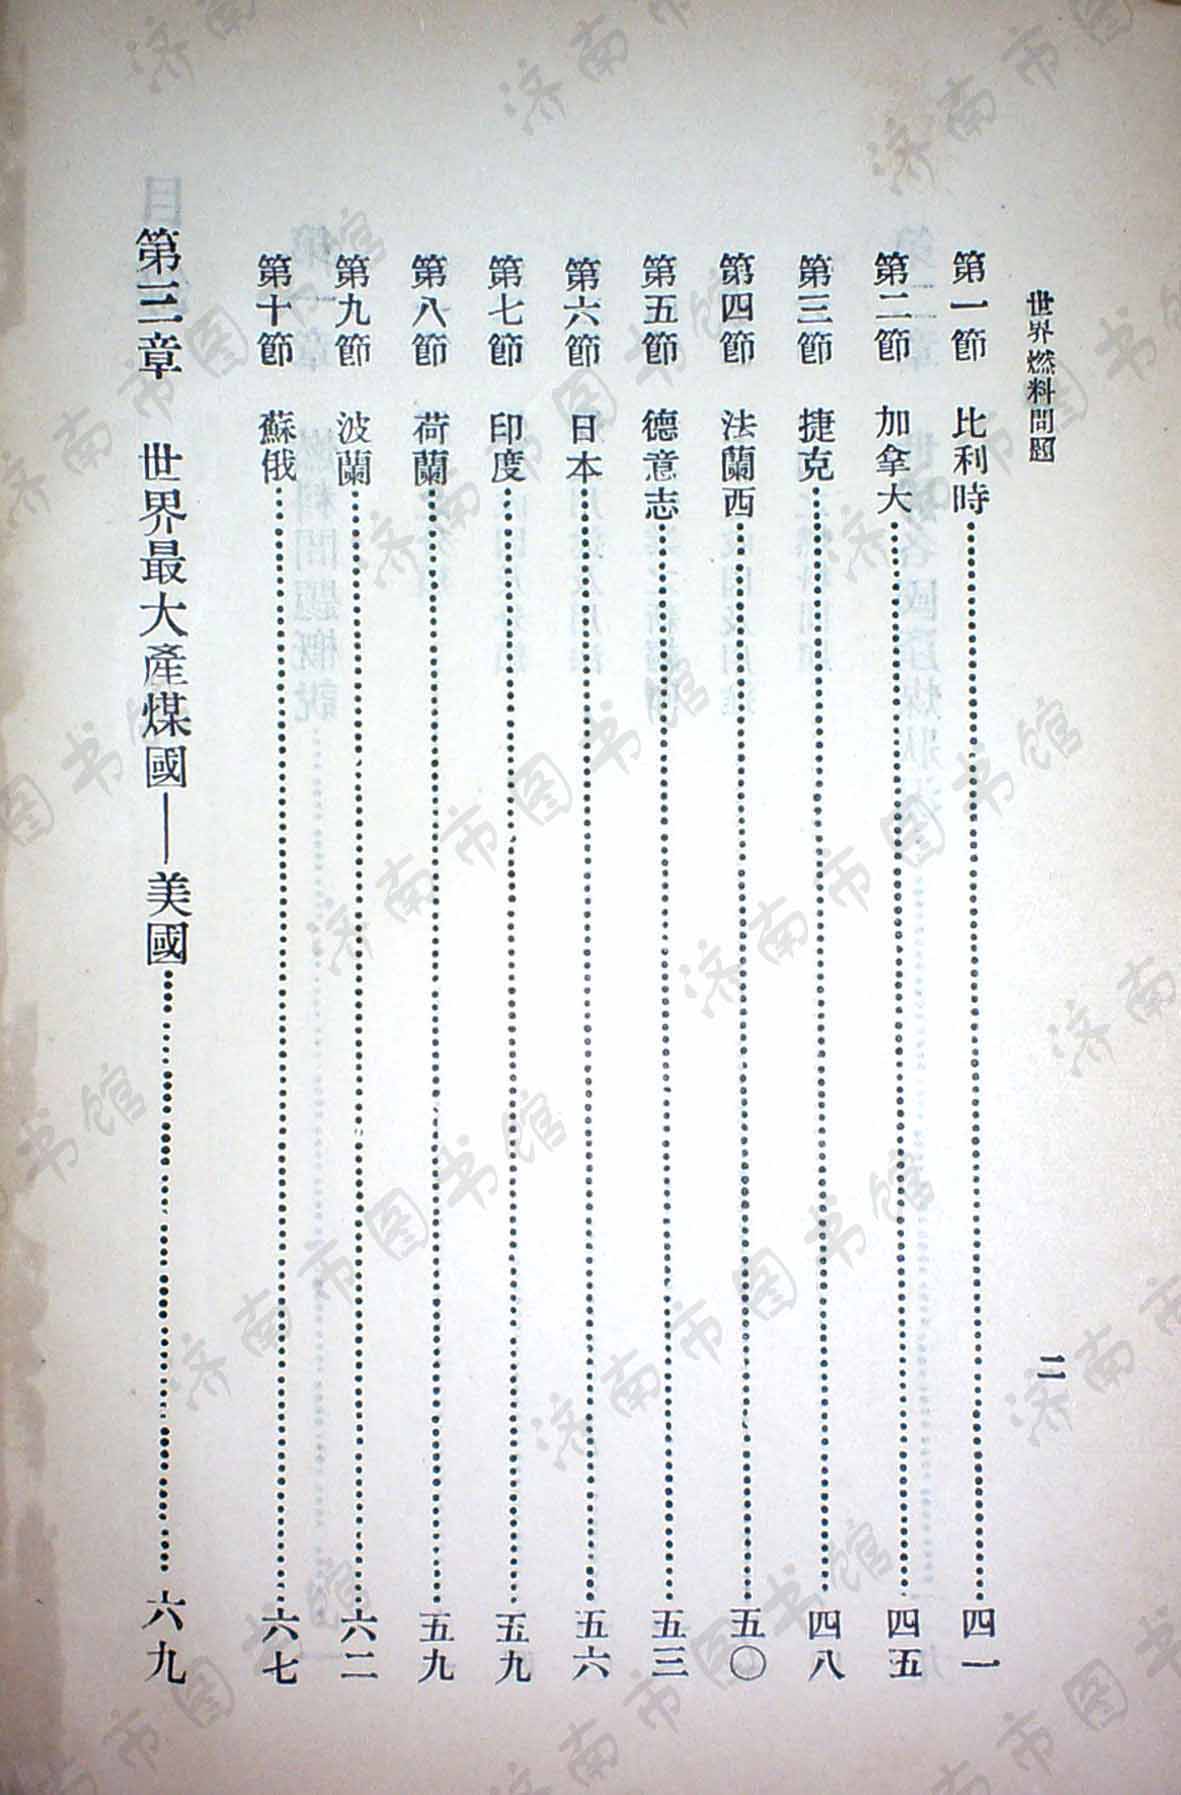 世界燃料問題
二
第一節 比利時……四一
第二節 加拿大……四五
第三節 捷克……四八
第四節 法蘭西……五〇
第五節 德意志……五三
第六節 日本……五六
第七節 印度……五九
第八節 荷蘭……五九
第九節 波蘭……六二
第十節 蘇俄……六七
第三章 世界最大產煤國——美國……六九
济南市图书馆